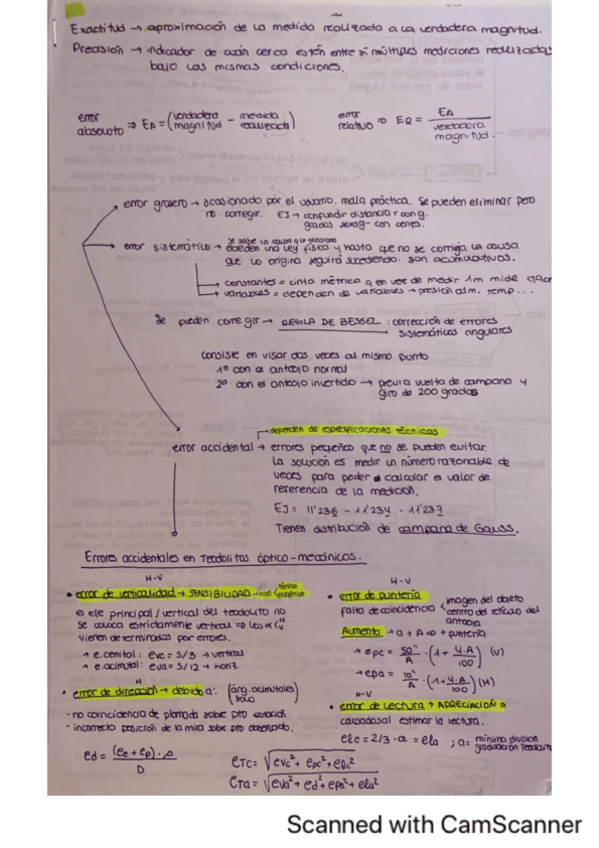 Exactitud → aproximación de la medida realizada a la verdadera magnitud.
Precisión → indicador de cuán cerca están entre sí múltiples mediciones realizadas
bajo las mismas condiciones.
error absoluto ⇒ EA = (verdadera magnitud - medida realizada)
error relativo ⇒ ER = EA / verdadera magnitud.
error grosero → ocasionado por el usuario. mala práctica. Se pueden eliminar pero
no corregir. EJ → confundir distancia r con g.
grados sexag- con cent.
se sabe la causa que
error sistemático → obedecen una ley física y hasta que no se corrija la causa
que lo origina seguirá sucediendo. son acumulativos.
→ constantes = cinta métrica q en vez de medir 1m mide
→ variables = dependen de variables → presión atm, temp...
Se pueden corregir → REGLA DE BESSEL : corrección de errores
sistemáticos angulares
consiste en visar dos veces al mismo punto
1º con al anteojo normal
2º con el anteojo invertido → previa vuelta de campana y
giro de 200 grados
→ dependen de especificaciones técnicas
error accidental → errores pequeños que no se pueden evitar
La solución es medir un número razonable de
veces para poder calcular el valor de
referencia de la medición.
EJ = 11'236 - 11'234 - 11'237
Tienen distribución de campana de Gauss.
Errores accidentales en Teodolitos óptico-mecánicos.
H-V
• error de verticalidad → SENSIBILIDAD → nivel tórico esférico
el eje principal / vertical del teodolito no
se coloca estrictamente vertical ⇒ los α
vienen determinados por errores.
→ e.cenital: evc = s/3 → vertical
→ e.acimutal: eva = s/12 → horiz.
H
• error de dirección → debido a: (áng. acimutales solo)
- no coincidencia de plomada sobre pto estación.
- incorrecta posición de la mira sobre pto
ed = (ee + ep) · ρ / D
H-V
• error de puntería imagen del objeto
falta de coincidencia centro del retículo del
anteojo
Aumento → a + A ⇒ + puntería
→ epc = 50" / A · (1 + 4·A / 100) (V)
→ epa = 10" / A · (1 + 4·A / 100) (H)
H-V
• error de Lectura → APRECIACIÓN a
estimar la lectura.
elc = 2/3 · a = ela ; a = mínima división
graduación Teodolito
eTc = √evc² + epc² + elc²
eTa = √eva² + ed² + epa² + ela²
Scanned with CamScanner